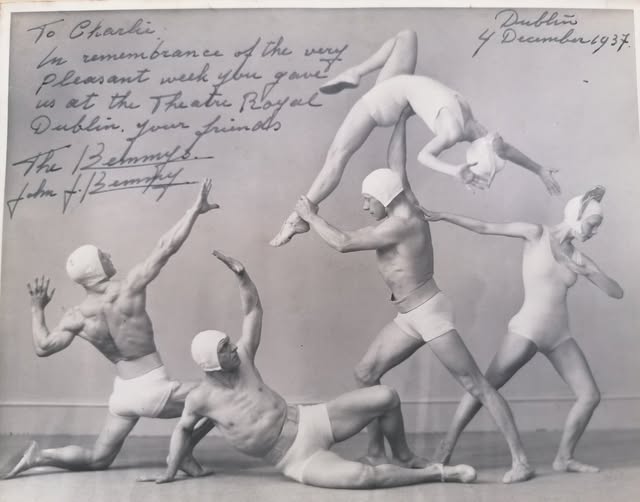 To Charlie.
In remembrance of the very
pleasant week you gave
us at the Theatre Royal
Dublin. your friends
The Bemmys.
John J. Bemmy
Dublin
4 December 1937.